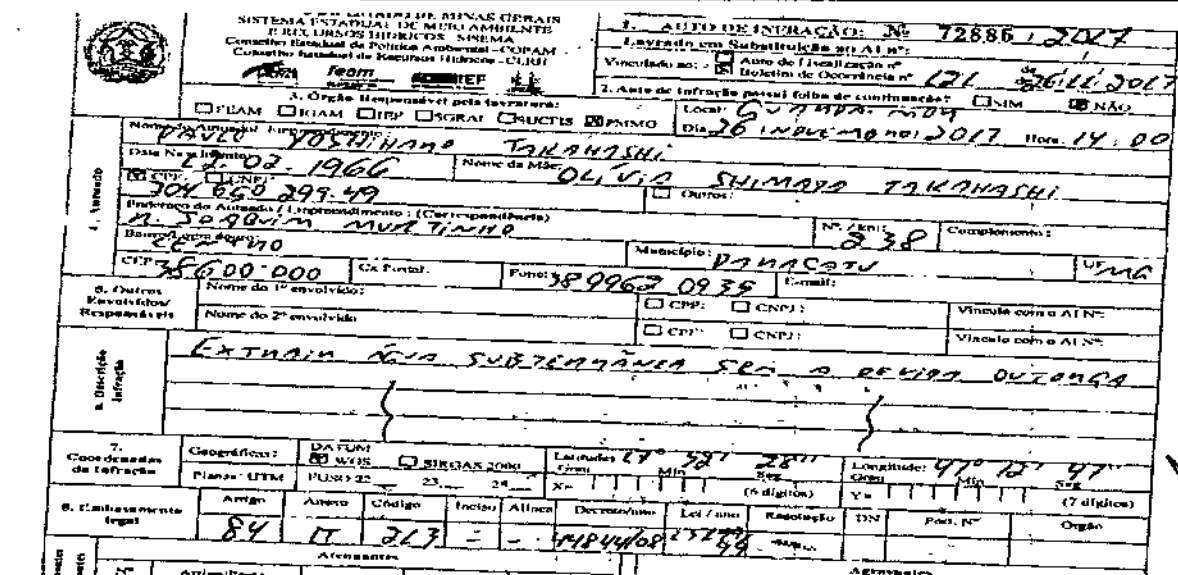 SISTEMA ESTADUAL DE MEIO AMBIENTE
E RECURSOS HÍDRICOS - SISEMA
Conselho Estadual de Política Ambiental - COPAM
Conselho Estadual de Recursos Hídricos - CERH
feam
IEF
1. AUTO DE INFRAÇÃO: Nº 72886 / 2017
Lavrado em Substituição ao AI nº:
Vinculado ao: Auto de Fiscalização nº de
Boletim de Ocorrência nº 121 de 26.11.2017
2. Auto de Infração possui folha de continuação? SIM NÃO
3. Órgão Responsável pela lavratura:
FEAM IGAM IEF SGRAI SUCFIS PMMG
Local: GUARDA-MOR
Dia 26 / NOVEMBRO / 2017 Hora: 14:00
4. Autuado
Nome do Autuado/ Empreendimento:
PAULO YOSHIHARO TAKAHASHI
Data Nascimento: 12.02.1966
Nome da Mãe: OLÍVIA SHIMADA TAKAHASHI
CPF: CNPJ:
704 660 299-49
Outros:
Endereço do Autuado / Empreendimento: (Correspondência)
R. JOAQUIM MURTINHO
Nº / km: 238
Complemento:
Bairro/Logradouro:
CENTRO
Município: PARACATU
UF MG
CEP: 38600-000
Cx Postal:
Fone: 38 9962 0935
E-mail:
5. Outros Envolvidos/ Responsáveis
Nome do 1º envolvido:
CPF: CNPJ:
Vínculo com o AI Nº:
Nome do 2º envolvido
CPF: CNPJ:
Vínculo com o AI Nº:
6. Descrição Infração
EXTRAIR ÁGUA SUBTERRÂNEA SEM A DEVIDA OUTORGA
7. Coordenadas da Infração
Geográficas:
DATUM
WGS SIRGAS 2000
Latitude: 17°
28"
Grau Min Seg
Longitude: 47° 12' 47"
Grau Min Seg
Planas: UTM
FUSO 22 23 24
X= (6 dígitos)
Y= (7 dígitos)
8. Embasamento legal
Artigo Anexo Código Inciso Alínea Decreto/ano Lei / ano Resolução DN Port. Nº Órgão
84 II 213 - - 44844/08
Atenuantes
Agravantes